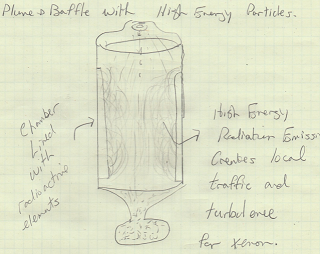 Plume & Baffle with High Energy Particles.
Chamber
Lined
with
radioactive
elements
High Energy
Radiation Emissi
Creates local
traffic and
turbulence
for xenon.